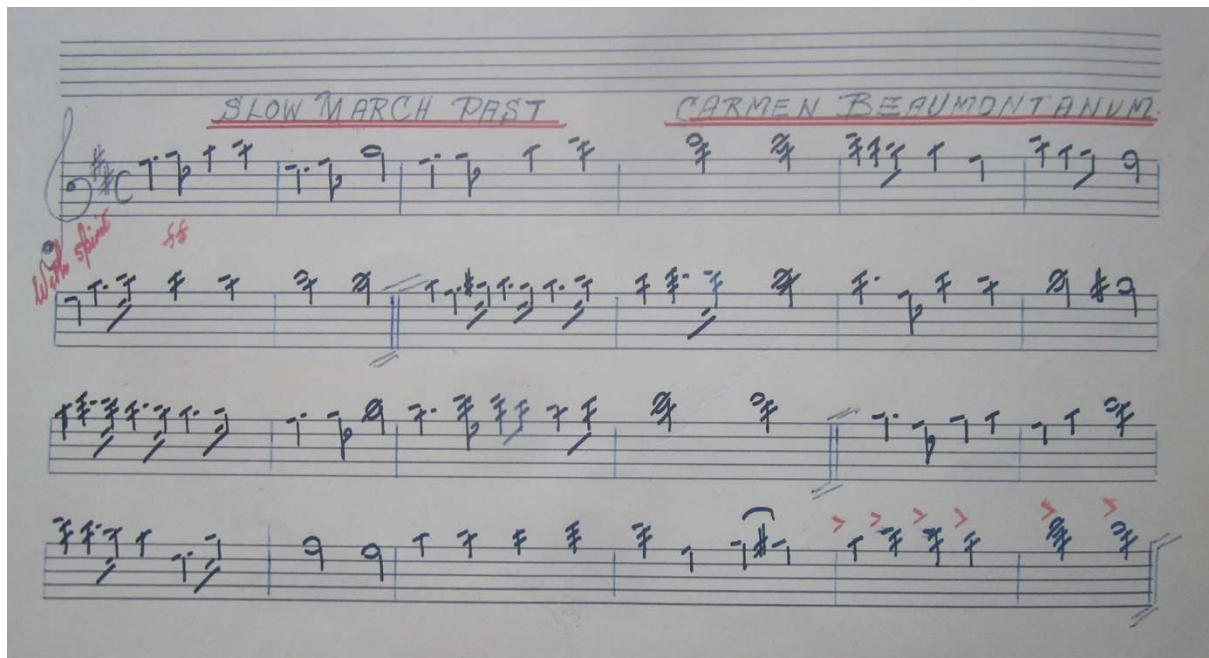 SLOW MARCH PAST CARMEN BEAUMONTANUM.
With spirit ff